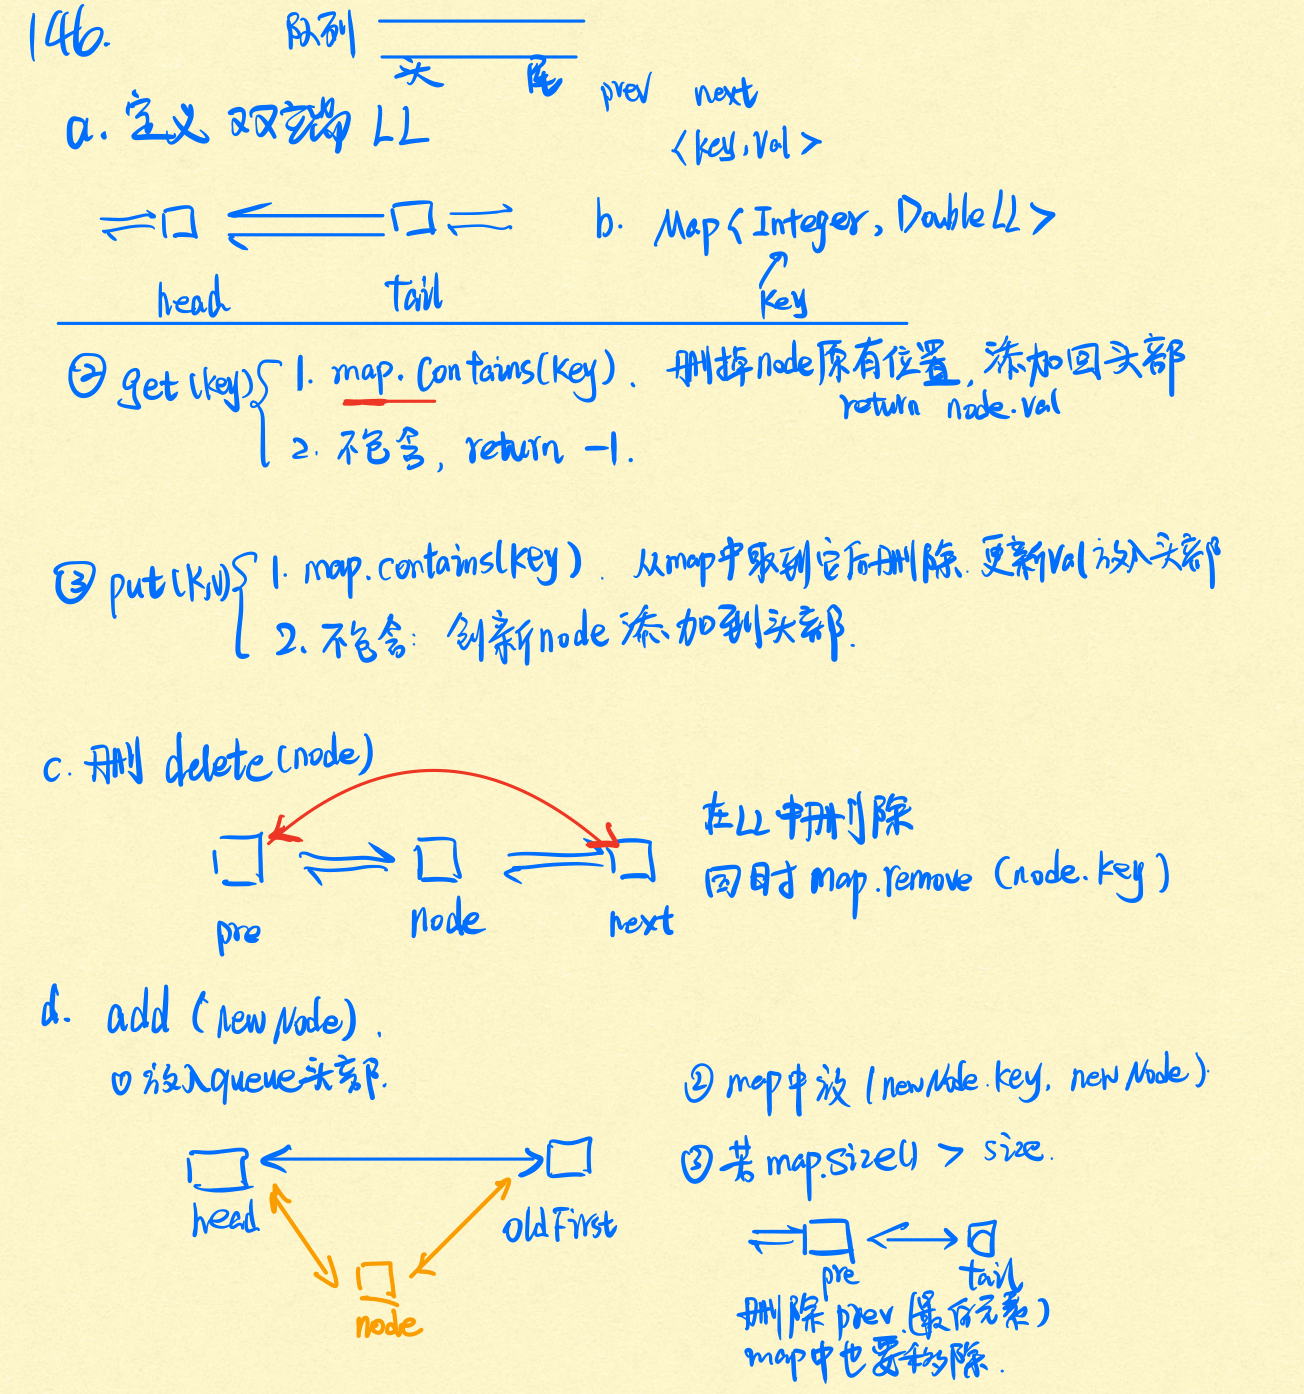 146.
队列
头 尾
prev next
<key, val>
a. 定义 双端 LL
head tail
b. Map<Integer, DoubleLL>
key
② get(key)
1. map.contains(key). 删掉node原有位置, 添加回头部
return node.val
2. 不包含, return -1.
③ put(k,v)
1. map.contains(key). 从map中取到它后删除. 更新val放入头部
2. 不包含: 创新node添加到头部.
c. 删 delete(node)
pre node next
在LL中删除
同时 map.remove (node.key)
d. add (newNode).
① 放入queue头部.
head oldFirst
node
② map中放 (newNode.key, newNode).
③ 若 map.size() > size.
pre tail
删除 prev.(最后元素)
map中也要移除.